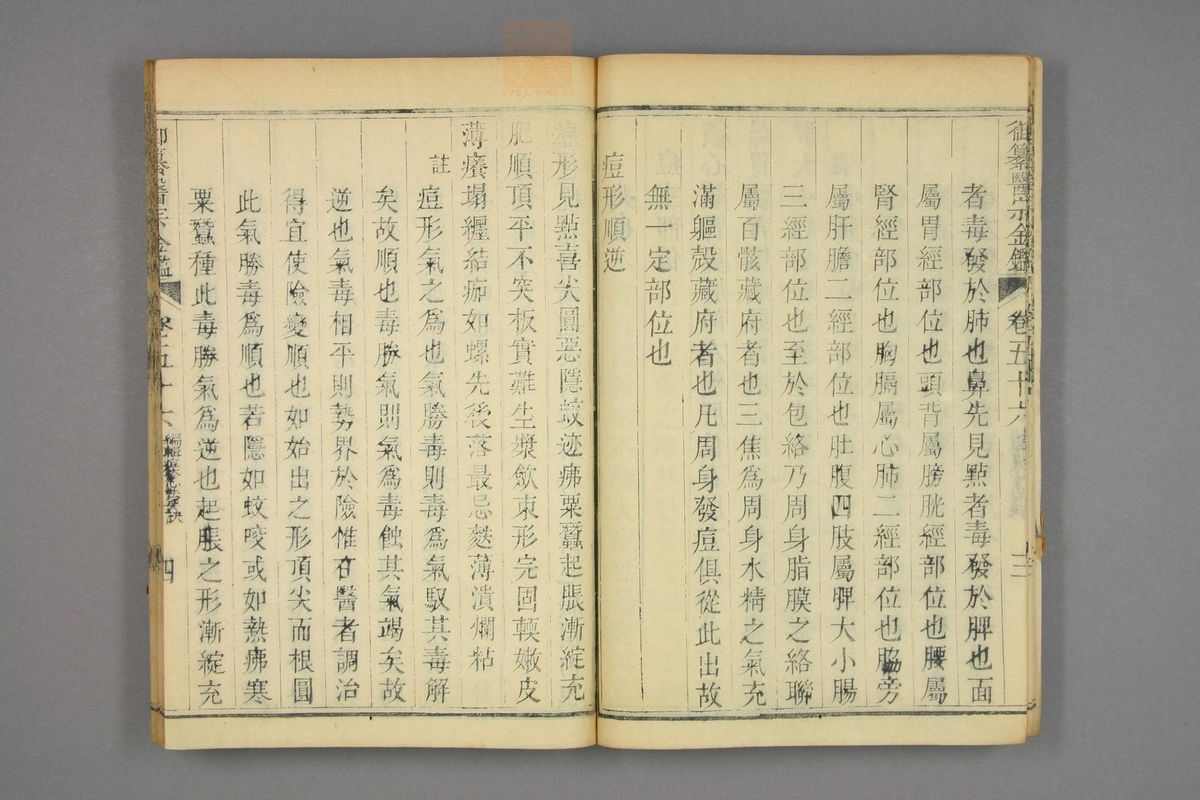 御纂醫宗金鑑 卷五十六 三
者毒發於肺也鼻先見點者毒發於脾也面
屬胃經部位也頭背屬膀胱經部位也腰屬
腎經部位也胸膈屬心肺二經部位也脇旁
屬肝膽二經部位也肚腹四肢屬脾大小腸
三經部位也至於包絡乃周身脂膜之絡聯
屬百骸藏府者也三焦為周身水精之氣充
滿軀殼藏府者也凡周身發痘俱從此出故
無一定部位也
痘形順逆
痘形見點喜尖圓惡隱蚊迹疿粟蠶起脹漸綻充
肥順頂平不突板實難生漿斂束形完固輭嫩皮
薄癢塌纏結痂如螺先後落最忌麩薄潰爛粘
註
痘形氣之為也氣勝毒則毒為氣馭其毒解
矣故順也毒勝氣則氣為毒蝕其氣竭矣故
逆也氣毒相平則勢界於險惟在醫者調治
得宜使險變順也如始出之形頂尖而根圓
此氣勝毒爲順也若隱如蚊咬或如熱疿寒
粟蠶種此毒勝氣爲逆也起脹之形漸綻充
御纂醫宗金鑑 卷五十六 四